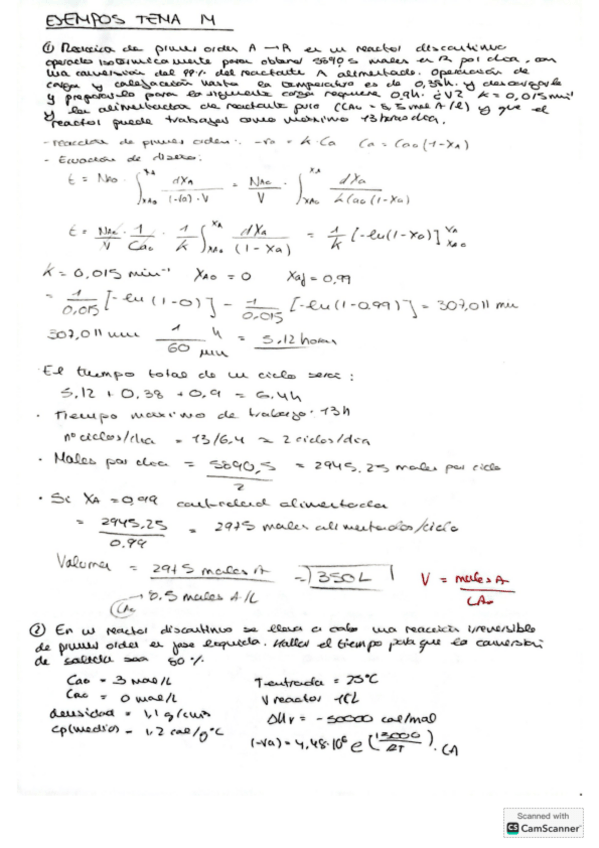 EJEMPOS TEMA M
① Reacción de primer orden A → R en un reactor discontinuo
operado isotérmicamente para obtener 5890,5 moles en R por día, con
una conversión del 99% del reactante A alimentado. Operación de
carga y calefacción hasta la temperatura es de 0,38h. y descargarlo
y prepararlo para la siguiente carga requiere 0,9h. ¿V? K = 0,015 min⁻¹
y la alimentación de reactante puro (CAo = 8,5 mol A/l) y que el
reactor puede trabajar como máximo 13 horas/día.
- reacción de primer orden: -ra = k·Ca Ca = Cao(1-XA)
- Ecuación de diseño:
t = NAo · ∫_{XAo}^{XA} dXA / (-ra)·V = NAo / V · ∫_{XAo}^{XA} dXa / k Cao (1-Xa)
t = NAo / V · 1 / Cao · 1 / k ∫_{XAo}^{XA} dXA / (1-Xa) = 1/k [-ln(1-Xa)]_{XAo}^{XA}
K = 0,015 min⁻¹ XAo = 0 XAf = 0,99
= 1/0,015 [-ln(1-0)] - 1/0,015 [-ln(1-0,99)] = 307,011 min
307,011 min 1 h / 60 min = 5,12 horas
El tiempo total de un ciclo será:
5,12 + 0,38 + 0,9 = 6,4h
· Tiempo máximo de trabajo: 13h
nº ciclos/día = 13/6,4 ≈ 2 ciclos/día
· Moles por día = 5890,5 / 2 = 2945,25 moles por ciclo
· Si XA = 0,99 cantidad alimentada
= 2945,25 / 0.99 = 2975 moles alimentados/ciclo
Volumen = 2975 moles A / 8.5 moles A/L = 350L
CAo
V = moles A / CAo
② En un reactor discontinuo se lleva a cabo una reacción irreversible
de primer orden en fase líquida. Hallar el tiempo para que la conversión
de salida sea 80%.
Cao = 3 mol/L T entrada = 75°C
Cao = 0 mol/L V reactor = 1CL
densidad = 1,1 g/cm³ ΔHr = -50000 cal/mol
Cp(medio) = 1,2 cal/g°C (-ra) = 4,48·10⁶ e(13000/RT)·CA
Scanned with
CS CamScanner